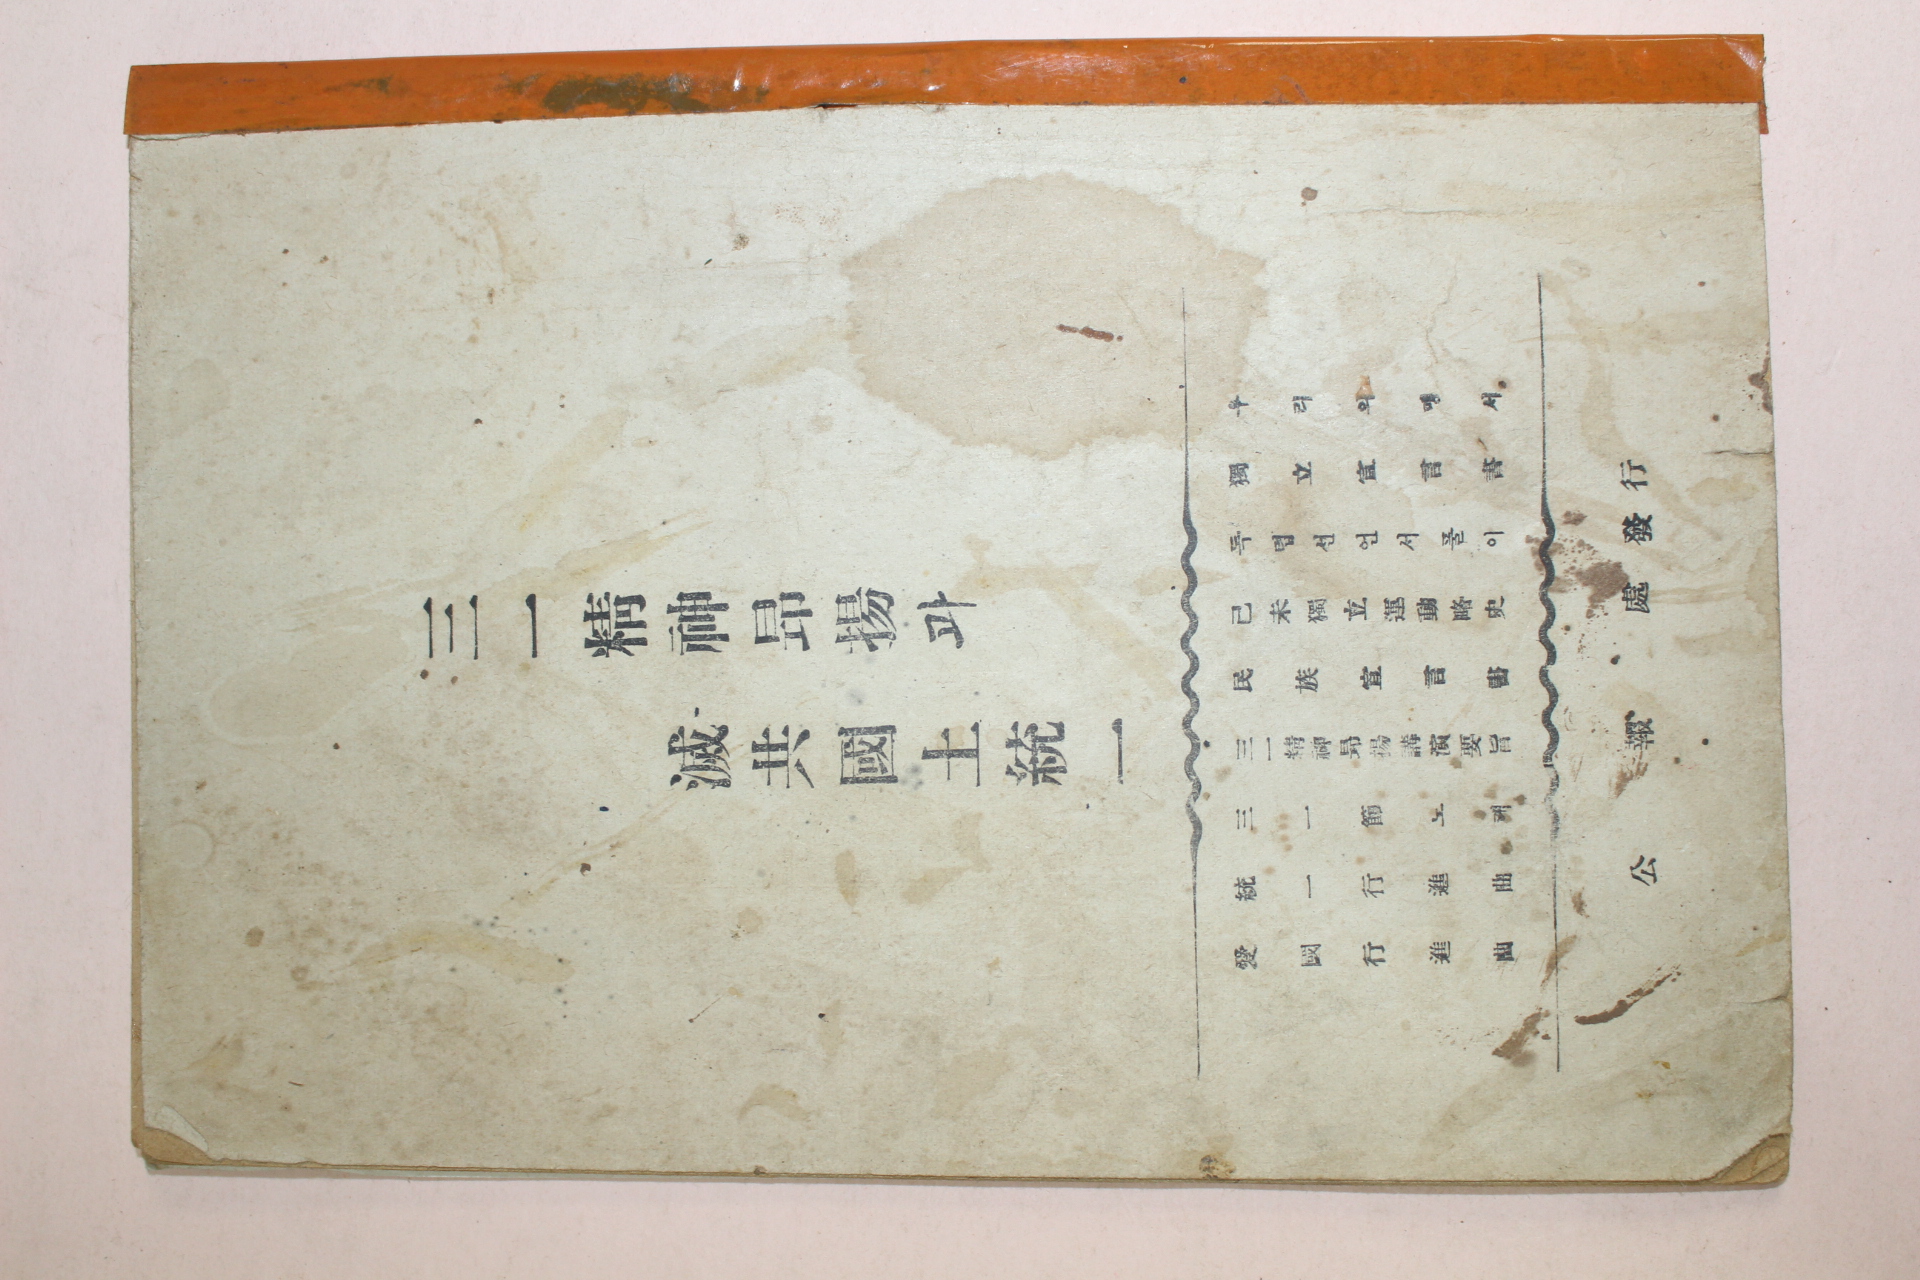 三一精神昂揚과
滅共國土統一
우리의맹서
獨立宣言書
독립선언서풀이
己未獨立運動略史
民族宣言書
三一精神昂揚講演要旨
三一節노래
統一行進曲
愛國行進曲
公報處發行